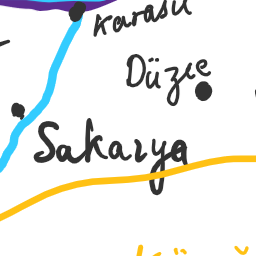 Karasu
Düzce
Sakarya